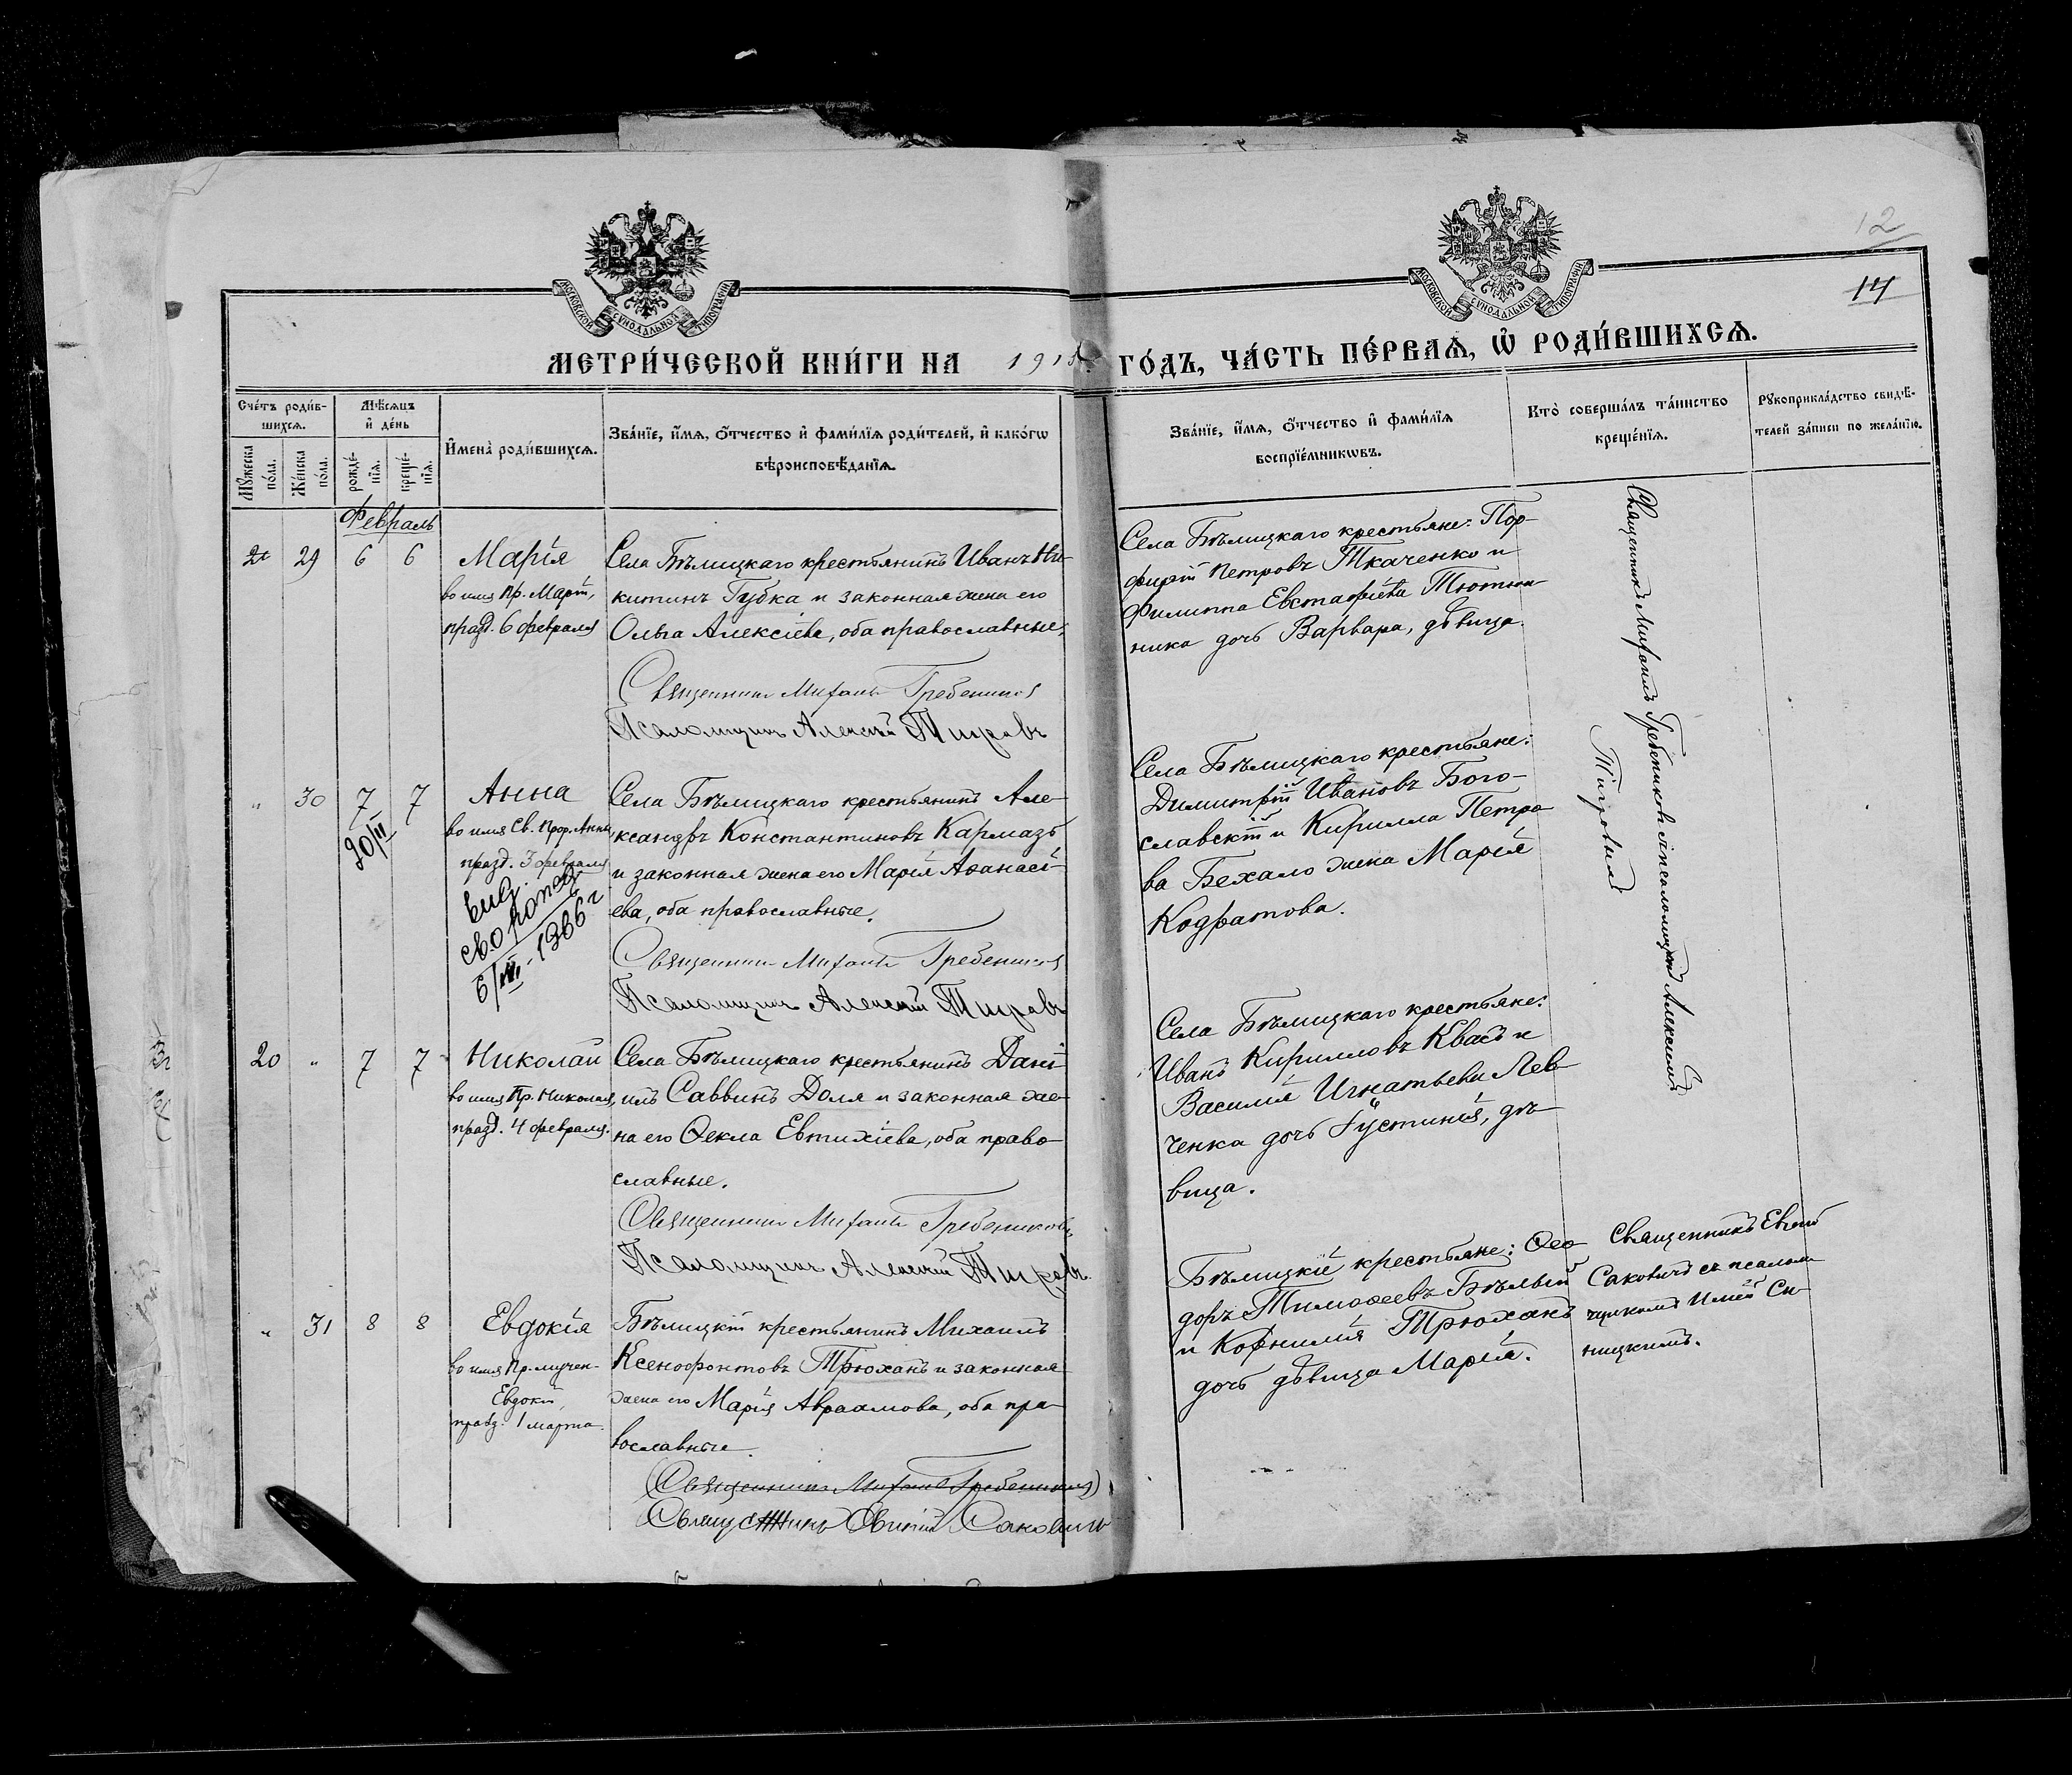 12
14
МОСКОВСКОЙ СѴНОДАЛЬНОЙ ТИПОГРАФІИ
МОСКОВСКОЙ СѴНОДАЛЬНОЙ ТИПОГРАФІИ
МЕТРИ́ЧЕСКОЙ КНИ́ГИ НА 1915 ГО́ДЪ, ЧА́СТЬ ПЕ́РВАѦ, Ѽ РОДИ́ВШИХСѦ.
Сче́тъ роди́в-
шихсѧ.
Мꙋ́жеска
по́ла.
Же́нска
по́ла.
Мѣ́сѧцъ
и҆ де́нь
рожде́-
нїѧ.
креще́-
нїѧ.
И҆мена̀ роди́вшихсѧ.
Зва́нїе, и҆́мѧ, ѻ҆́тчество и҆ фами́лїѧ роди́телей, и҆ како́гѡ
вѣроисповѣ́данїѧ.
Зва́нїе, и҆́мѧ, ѻ҆́тчество и҆ фами́лїѧ
воспрїе́мникѡвъ.
Кто̀ соверша́лъ та́инство
креще́нїѧ.
Рꙋкоприкла́дство свидѣ́-
телей за́писи по жела́нїю.
Февраль
29 6 6
Марія
во имя Пр. Марѳ.,
празд. 6 февраля
Села Бѣлицкаго крестьянинъ Иванъ Ни-
китинъ Губка и законная жена его
Ольга Алексіева, оба православные.
Священникъ Михаилъ Гребениковъ
Псаломщикъ Алексѣй Тигровъ
Села Бѣлицкаго крестьяне: Пор-
фирій Петровъ Ткаченко и
Филиппа Евстафіева Тютюн-
ника дочь Варвара, дѣвица.
Священникъ Михаилъ Гребениковъ съ псаломщикомъ Алексіемъ
Тигровымъ
" 30 7 7
20/II
Анна
во имя Св. Прор. Анны,
празд. 3 февраля
выд.
св.о рожд
6/VII-1966 г
Села Бѣлицкаго крестьянинъ Але-
ксандръ Константиновъ Кармазь
и законная жена его Марія Аѳанасі-
ева, оба православные.
Священникъ Михаилъ Гребениковъ
Псаломщикъ Алексѣй Тигровъ
Села Бѣлицкаго крестьяне:
Димитрій Ивановъ Бого-
славскій и Кирилла Петро-
ва Бехало жена Марія
Кодратова.
20 " 7 7
Николай
во имя Пр. Николая,
празд. 4 февраля.
Села Бѣлицкаго крестьянинъ Дані-
илъ Саввинъ Доля и законная же-
на его Ѳекла Евтихіева, оба право-
славные.
Священникъ Михаилъ Гребениковъ
Псаломщикъ Алексѣй Тигровъ
Села Бѣлицкаго крестьяне:
Иванъ Кирилловъ Квасъ и
Василія Игнатьева Лев-
ченка дочь Іустинія, дѣ-
вица.
" 31 8 8
Евдокія
во имя Пр. мучен.
Евдокіи,
празд. 1 марта.
Бѣлицкій крестьянинъ Михаилъ
Ксенофонтовъ Трюханъ и законная
жена его Марія Авраамова, оба пра-
вославные.
Священникъ Михаилъ Гребениковъ
Священникъ Евгеній Саковичъ
Бѣлицкіе крестьяне: Ѳео-
доръ Тимоѳеевъ Бѣлый
и Корнилія Трюханъ
дочь дѣвица Марія.
Священникъ Евгеній
Саковичъ съ псалом-
щикомъ Иліей Си-
ницкимъ.